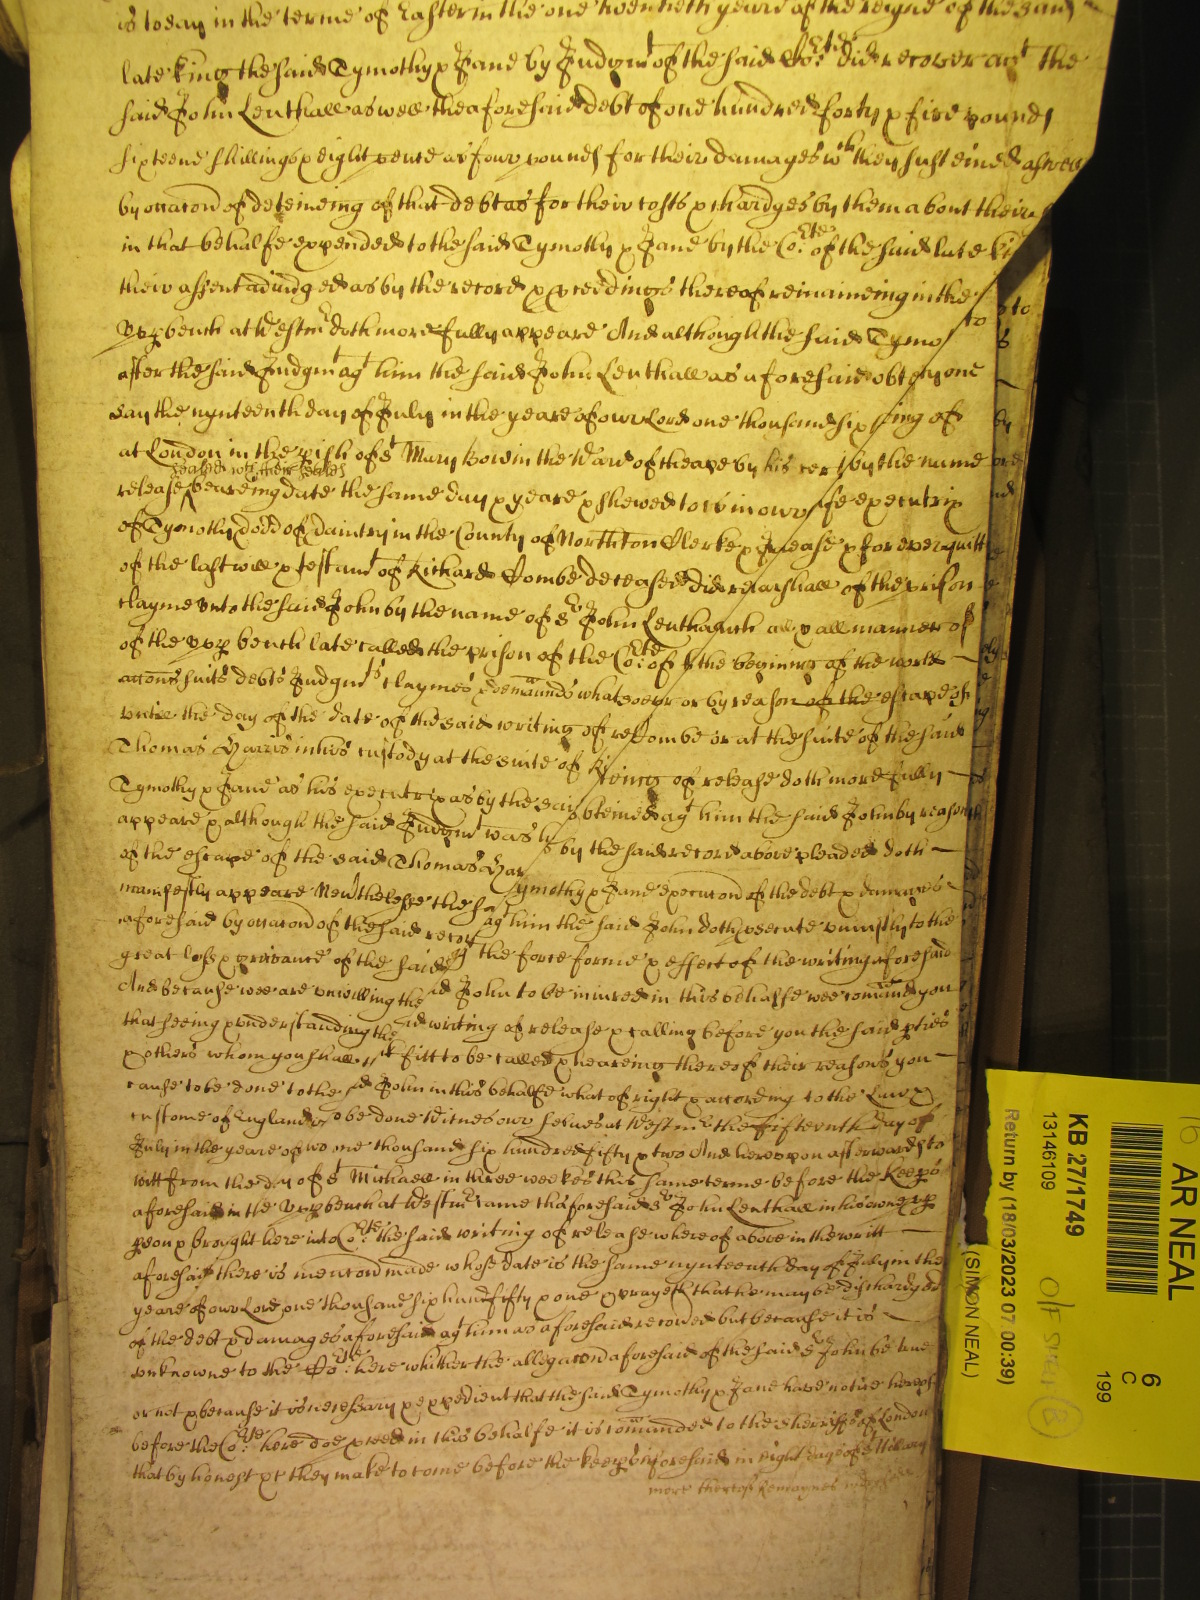 is to say in the terme of Easter in the one twentieth yeare of the reigne of the said
late king the said Tymothy & Jane by Judgmt of the said Cote did recover agt the
said John Lenthall aswell the aforesaid debt of one hundred forty & five pounds
sixteene shillings & eight pence as four pounds for their damages wch they susteined aswell
by occacon of deteineing of that debt as for their costs & chardges by them about their
in that behalfe expended to the said Tymothy & Jane by the Cote of the said late
their assent adiudged as by the record & pceedings thereof remaineing in the
upp bench at Westmr doth more fully appeare And although the said Tymo
to
after the said Judgmt agt him the said John Lenthall as aforesaid obt on one
day the nynteenth day of July in the yeare of our Lord one thousand six ing of
at London in the pish of St Mary Bow in the Ward of Cheape by his cer by the name
sealed wth their seales
release beareing date the same day & yeare & shewed to us in our fe executrix
of Tymothy Dodd of Daintry in the County of Northton Clerke & J lease & for ever quitt
of the last will & testamt of Richard Combe deceased did re arshall of the prison
clayme unto the said John by the name of Sr John Lenthall uch all & all manner of
of the upp bench late called the prison of the Cote of the begining of the world
accons suits debts Judgmts claymes & demaunds whatsoever or by reason of the escape of
untill the day of the date of the said writing of re Combe or at the suite of the said
Thomas Harris in his custody at the suite of Ri iting of release doth more fully
Tymothy & Jane as his executrix as by the said obteined agt him the said John by reason
appeare & although the said Judgmt was h by the said record above pleaded doth
of the escape of the said Thomas Har
manifestly appeare Nevthelesse the s ymothy & Jane execucon of the debt & damages
aforesaid by occacon of the said recov agt him the said John doth psecute unjustly to the
great losse & grievance of the said the force forme & effect of the writing aforesaid
And because wee are unwilling the id John to be iniured in this behalfe wee comaund you
that seeing & understanding the id writing of release & calling before you the said pties
& others whom you shall fitt to be called & heareing thereof their reasons you
cause to be done to the id John in this behalfe what of right & according to the Law &
custome of England to be done Witnes our selves at Westmr the fifteenth day of
July in the yeare of our one thousand six hundred fifty & two And hereupon afterwards to
witt from the day of St Michaell in three weekes this same terme before the Keeps
aforesaid in the upp bench at Westmr came thaforesaid Sr John Lenthall in his owne pp
pson & brought here into Cote the said writing of release whereof above in the writt
aforesaid there is mencon made whose date is the same nynteenth day of July in the
yeare of our Lord one thousand six hund fifty & one & prayeth that he may be dischardged
of the debt & damages aforesaid agt him as aforesaid recoved but because it is
unknowne to the Cote here whither the allegacon aforesaid of the said Sr John be true
or not & because it is necessary & expedient that the said Tymothy & Jane have notice hereof
before the Cote here doe pceed in this behalfe it is comaunded to the Sheriffs of London
that by honest &c they make to come before the keeps aforesaid in eight dayes of St Hillary
AR NEAL
6
C
199
KB 27/1749
13146109
Return by (18/03/2023 07:00:39)
(SIMON NEAL)